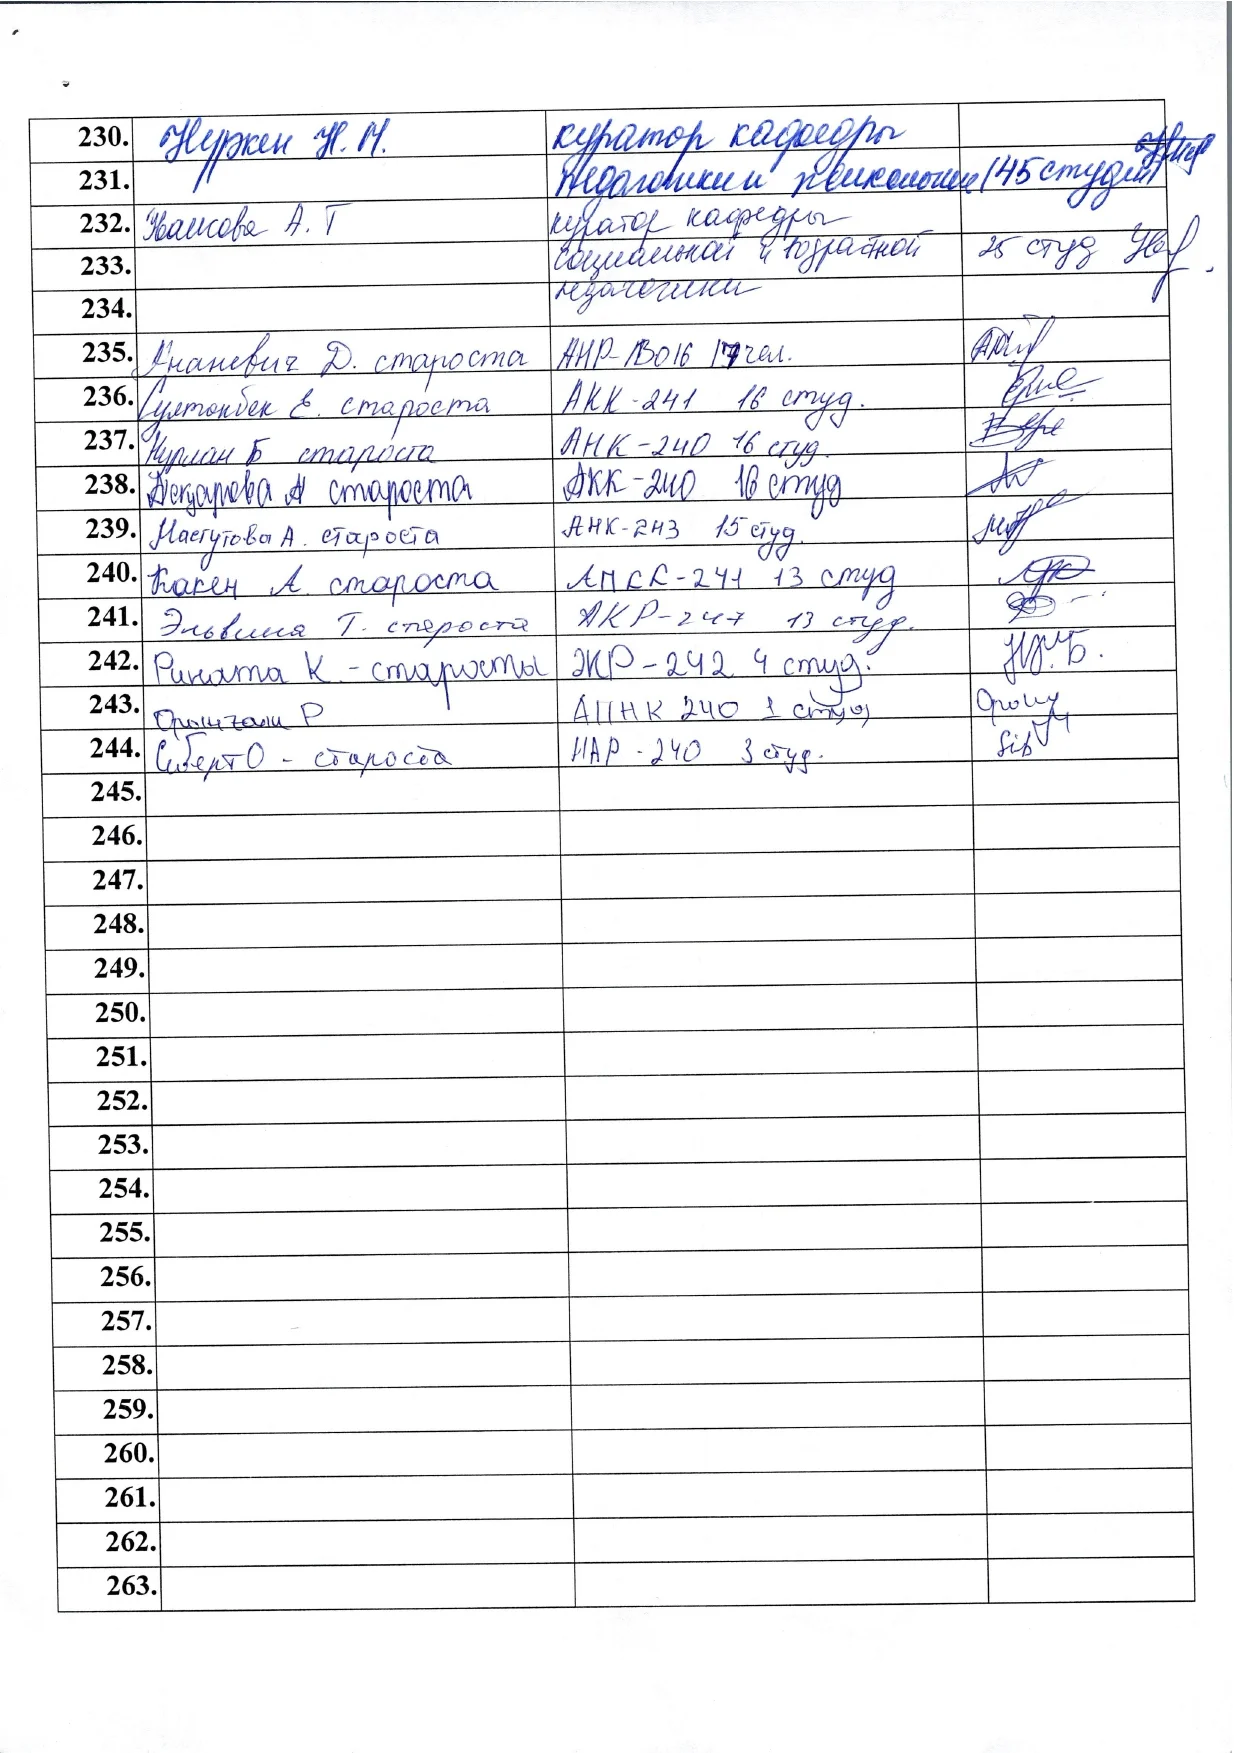 230. Нуркен Н. М. куратор кафедры
231. педагогики и психологии (45 студент)
232. А. Т куратор кафедры
233. социальной и возрастной 25 студ
234. педагогики
235. Ананевич Д. староста АНР-18016 17 чел.
236. Султонбек Е. староста АКК-241 16 студ.
237. Нурлан Б староста АНК-240 16 студ.
238. Аскарова А староста АКК-240 16 студ
239. Мастутова А. староста АНК-243 15 студ.
240. Какен А. староста АПСК-241 13 студ
241. Эльвина Т. староста АКР-247 13 студ.
242. Рината К. - старосты ЭКР-242 4 студ. Нұр.Б.
243. Р АПНК 240 1 студ
244. Сиберт О - староста НАР-240 3 студ. Sib
245.
246.
247.
248.
249.
250.
251.
252.
253.
254.
255.
256.
257.
258.
259.
260.
261.
262.
263.